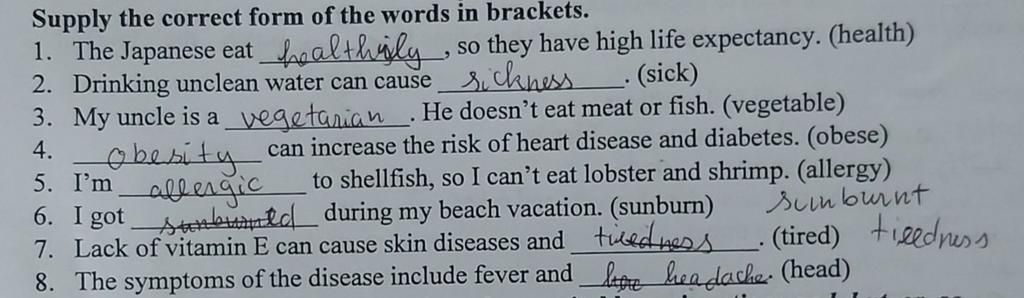 Supply the correct form of the words in brackets.
1. The Japanese eat healthily, so they have high life expectancy. (health)
2. Drinking unclean water can cause sickness. (sick)
3. My uncle is a vegetarian. He doesn't eat meat or fish. (vegetable)
4. Obesity can increase the risk of heart disease and diabetes. (obese)
5. I'm allergic to shellfish, so I can't eat lobster and shrimp. (allergy)
6. I got during my beach vacation. (sunburn) sunburnt
7. Lack of vitamin E can cause skin diseases and tiredness. (tired) tiredness
8. The symptoms of the disease include fever and headache. (head)